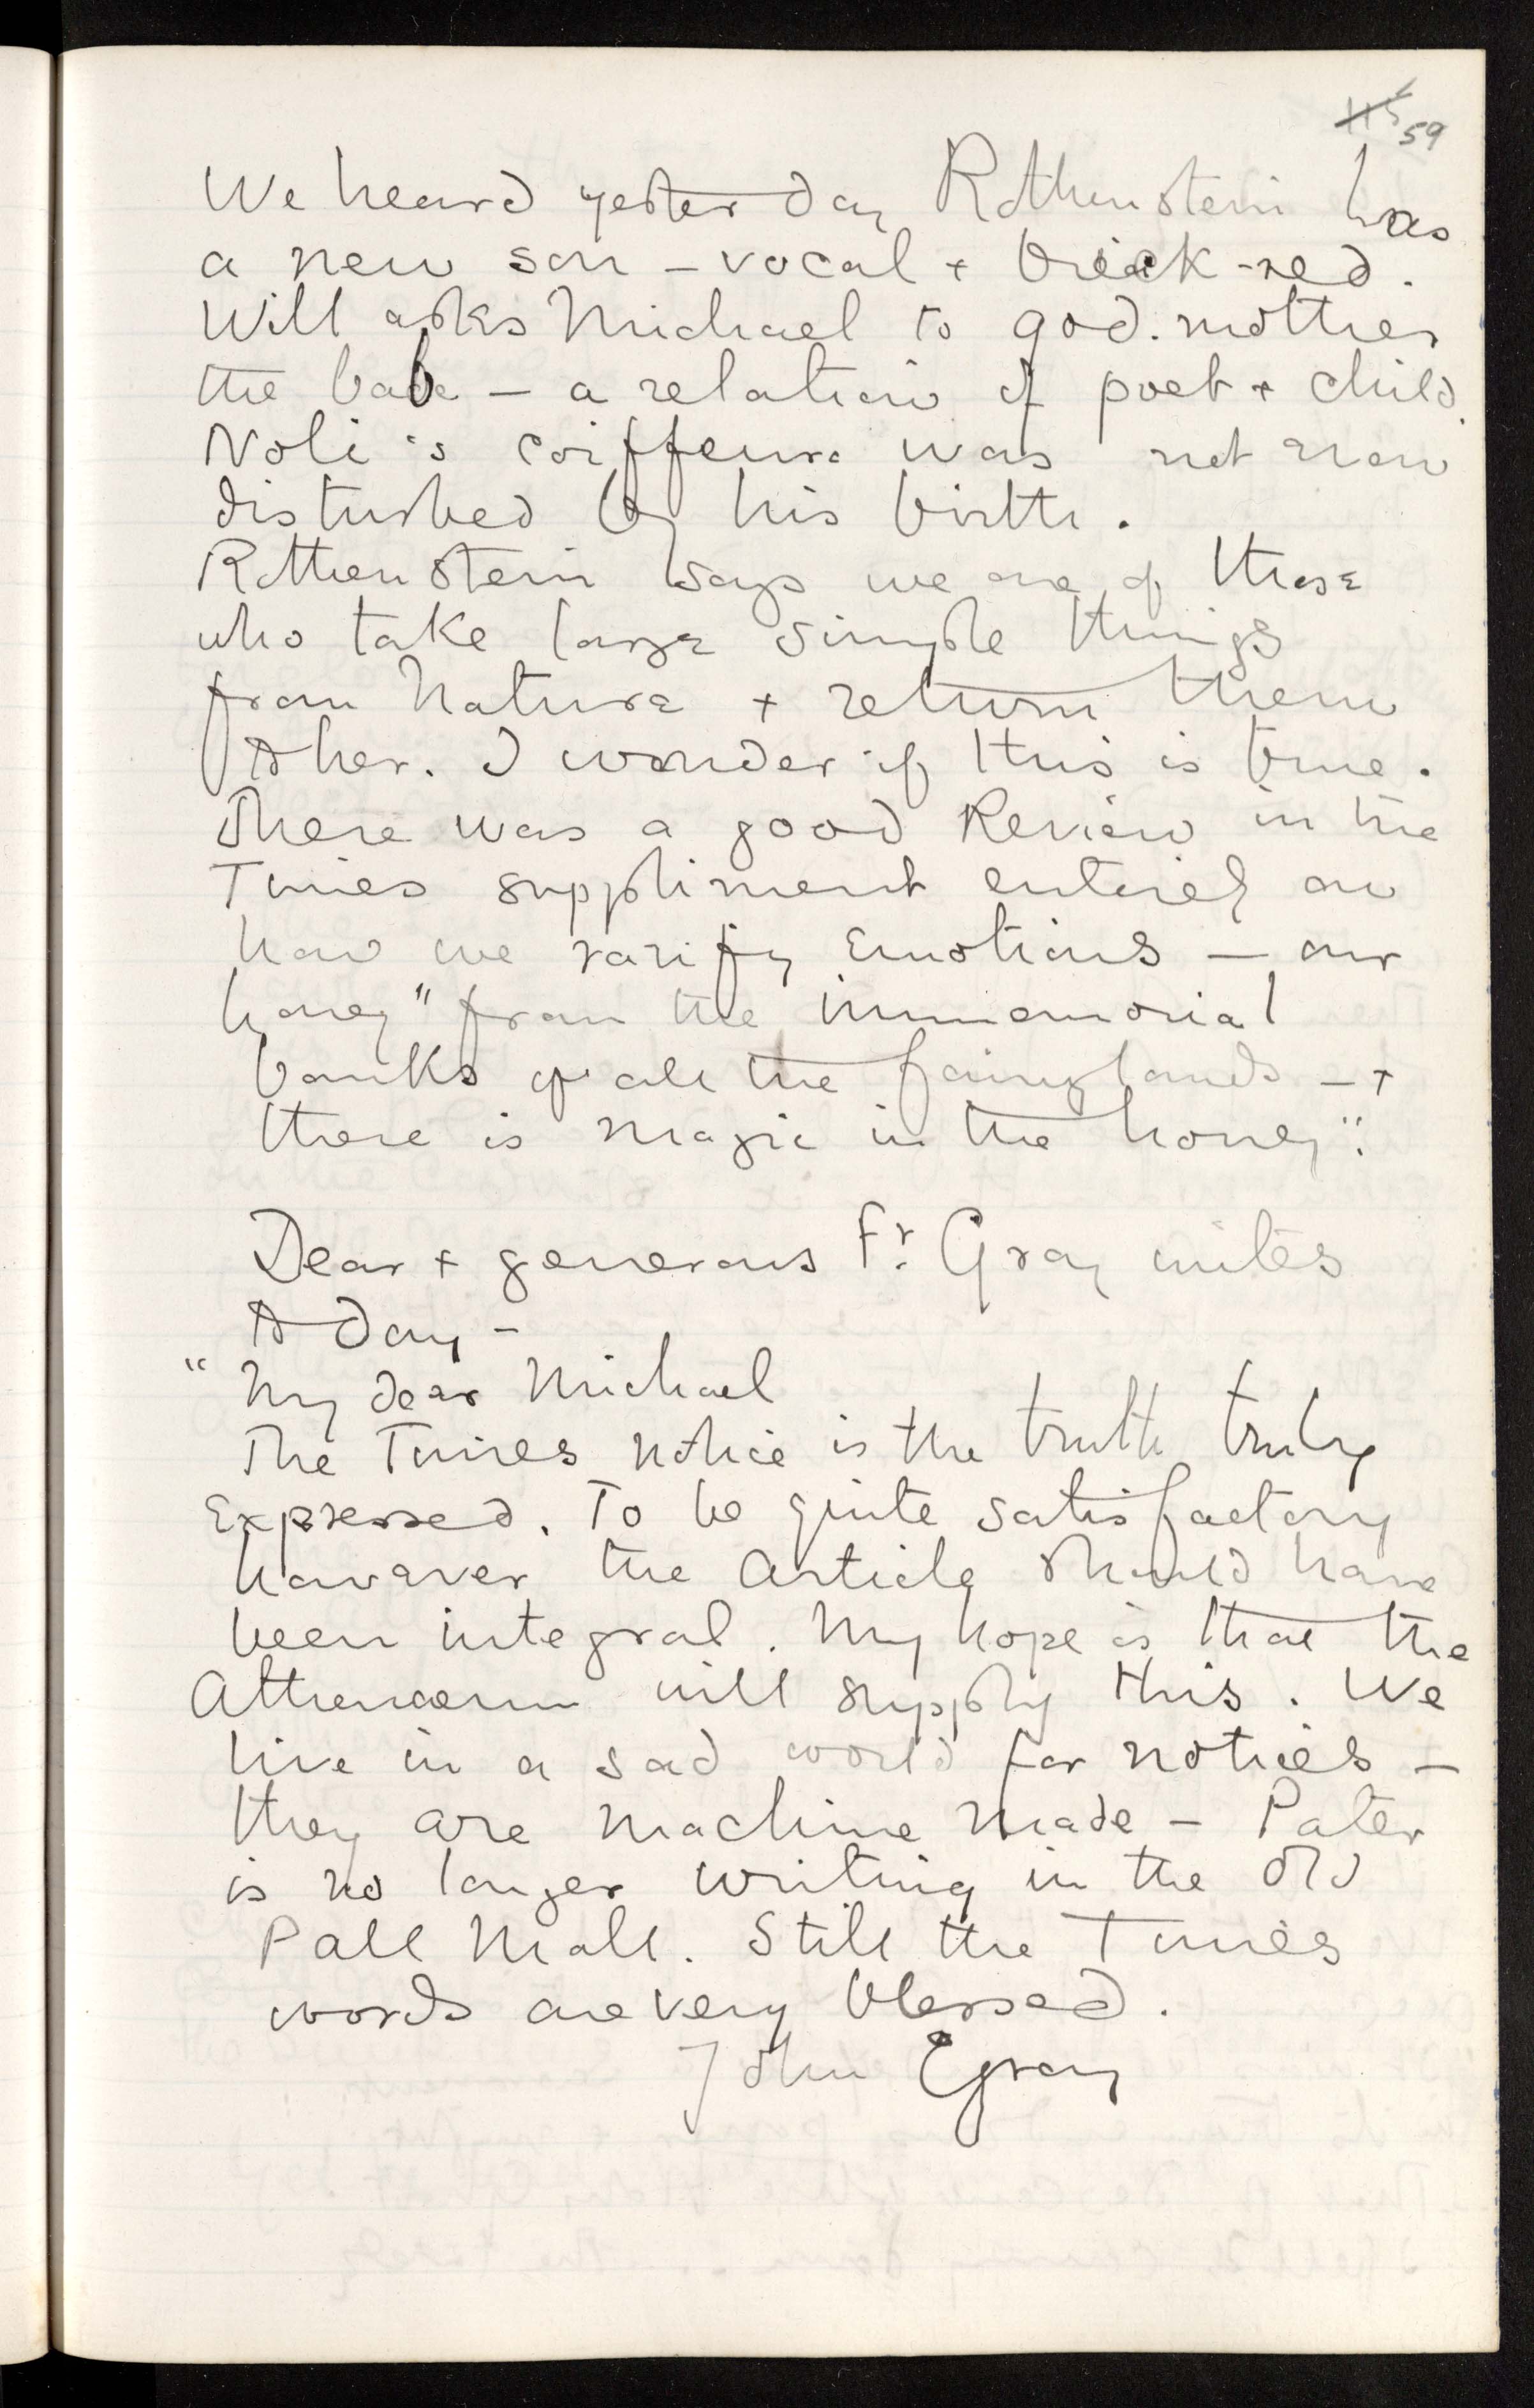 115 59
We heard yesterday Rothenstein has
a new son – vocal + brick-red.
Will asks Michael to god-mother
the babe – a relation of poet + child.
Noli's coiffeure was not now
disturbed by his birth.
Rothenstein says we are of those
who take large simple things
from Nature + return them
to her. I wonder if this is true.
There was a good Review in the
Times suppliment entirely on
how we rarify Emotions – our
honey "from the immemorial
banks of all the fairylands – +
there is magic in the honey".
Dear + generous Fr. Gray writes
to day –
"My dear Michael
The Times notice is the truth truly
Expressed. To be quite satisfactory
however the Article should have
been integral. My hope is that the
Athenaeum will supply this. We
live in a sad world for notices –
they are machine made – Pater
is no longer writing in the old
Pall Mall. Still the Times
words are very blessed.
John Gray